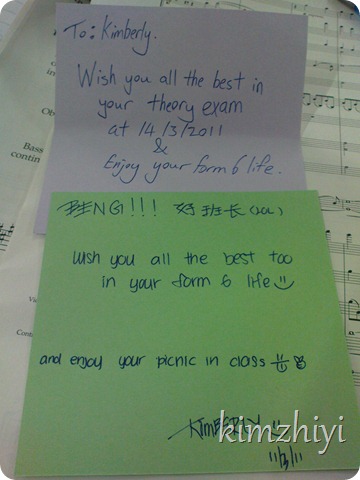 To: Kimberly.
Wish you all the best in
your theory exam
at 14/3/2011
&
Enjoy your form 6 life.
Ob
Bass
contin
NG!!! 好班长
Wish you all the best too
in your form 6 life
and enjoy your picnic in class
KIMBERLY
kimzhiyi
11/3/11